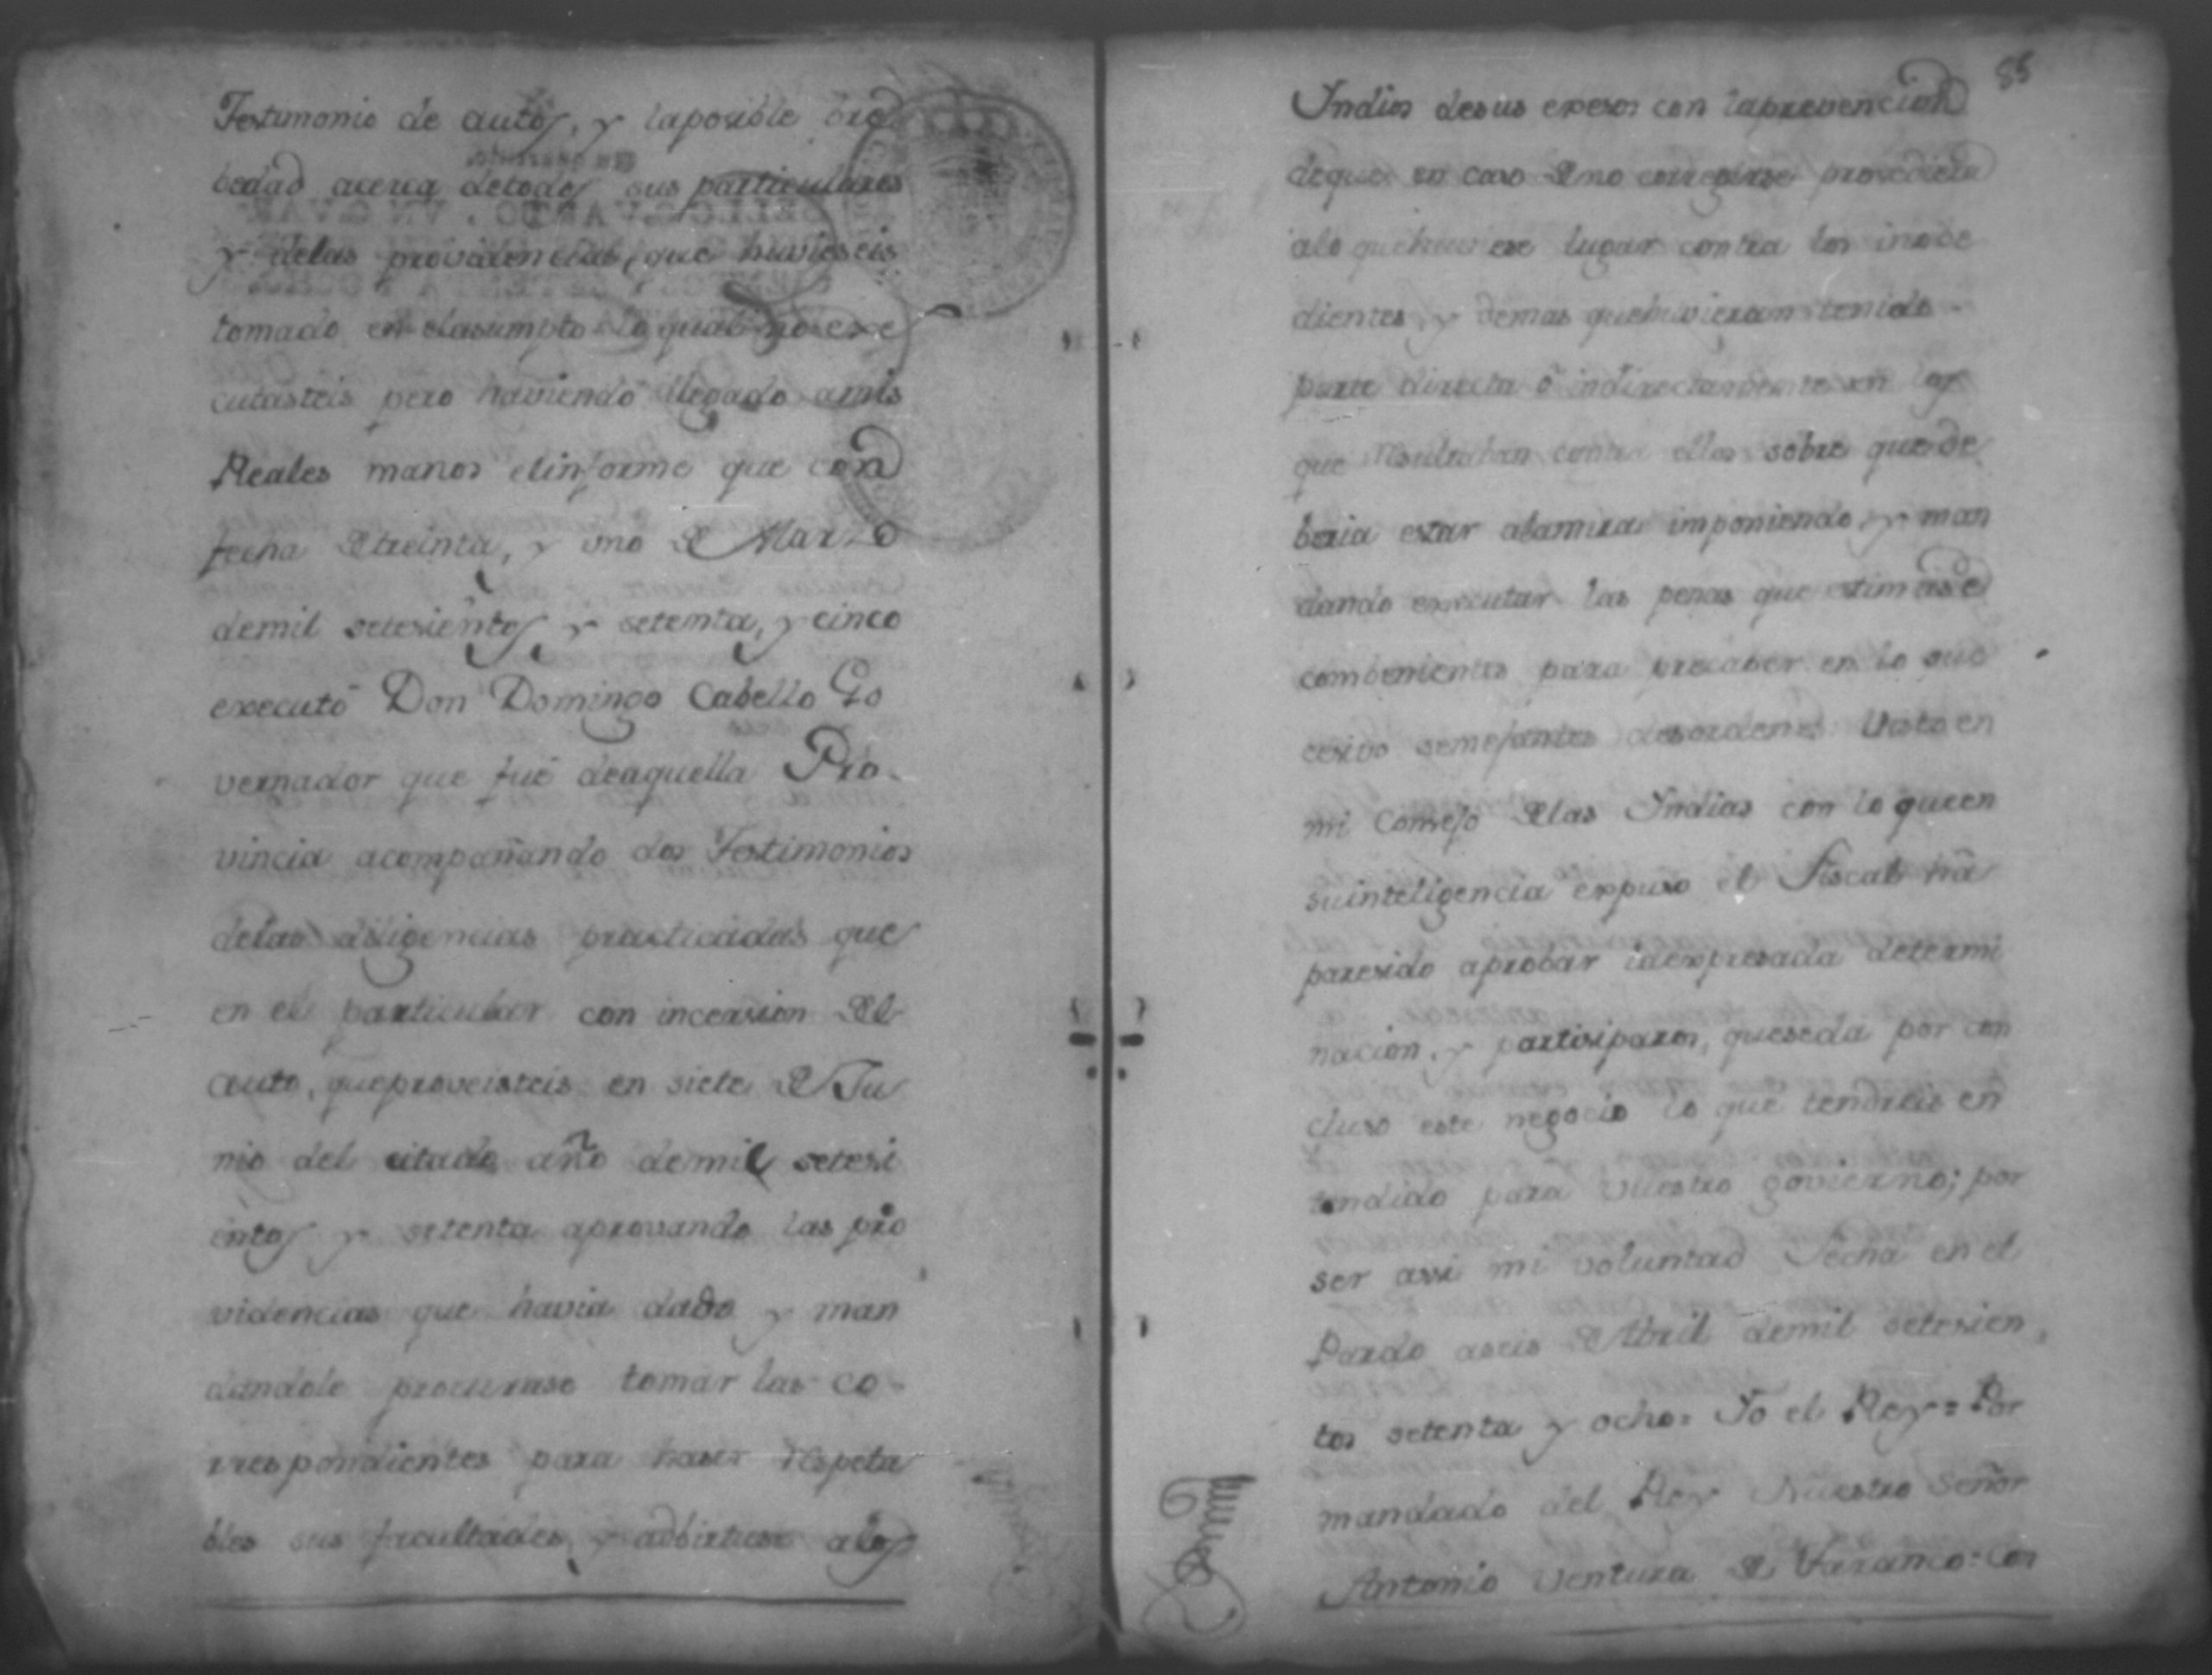 Testimonio de autos, y laposible bre
bedad acerca detodos sus particulares
y delas providencias, que huvieseis
tomado en elasumpto lo qual no exe
cutasteis pero haviendo llegado amis
Reales manos elinforme que con
fecha de treinta, y uno de Marzo
demil setesientos y setenta, y cinco
executó Don Domingo Cabello Go
vernador que fué deaquella Pro-
vincia acompañando dos Testimonios
delas diligencias practicadas que
en el particular con incersion del
auto, queproveisteis en siete de Ju
nio del citado año demil setesi
entos y setenta aprovando las pro
videncias que havia dado y man
dandole procurase tomar las co-
rrespondientes para haser respeta
bles sus facultades, y adbirtiese alos
85
Indios desus exesos con laprevencion
deque en caso de no corregirse procediera
alo quehuviese lugar contra los inobe
dientes, y demas quehuvieran tenido
parte directa ó indirectamente en los
que resultaban contra ellos sobre quede
beria estar alamira imponiendo, y man
dando executar las penas que estimase
combenientes para precaber en lo suc
cesivo semejantes desordenes. Visto en
mi Consejo delas Indias con lo queen
suinteligencia expuso el Fiscal há
paresido aprobar laexpresada determi
nacion, y partisiparos, queseda por con
cluso este negocio lo que tendreis en
tendido para vuestro govierno; por
ser assi mi voluntad Fecha en el
Pardo aseis de Abril demil setesien
tos setenta y ocho = Yo el Rey = Por
mandado del Rey Nuestro Señor
Antonio Ventura de Taranco = Con